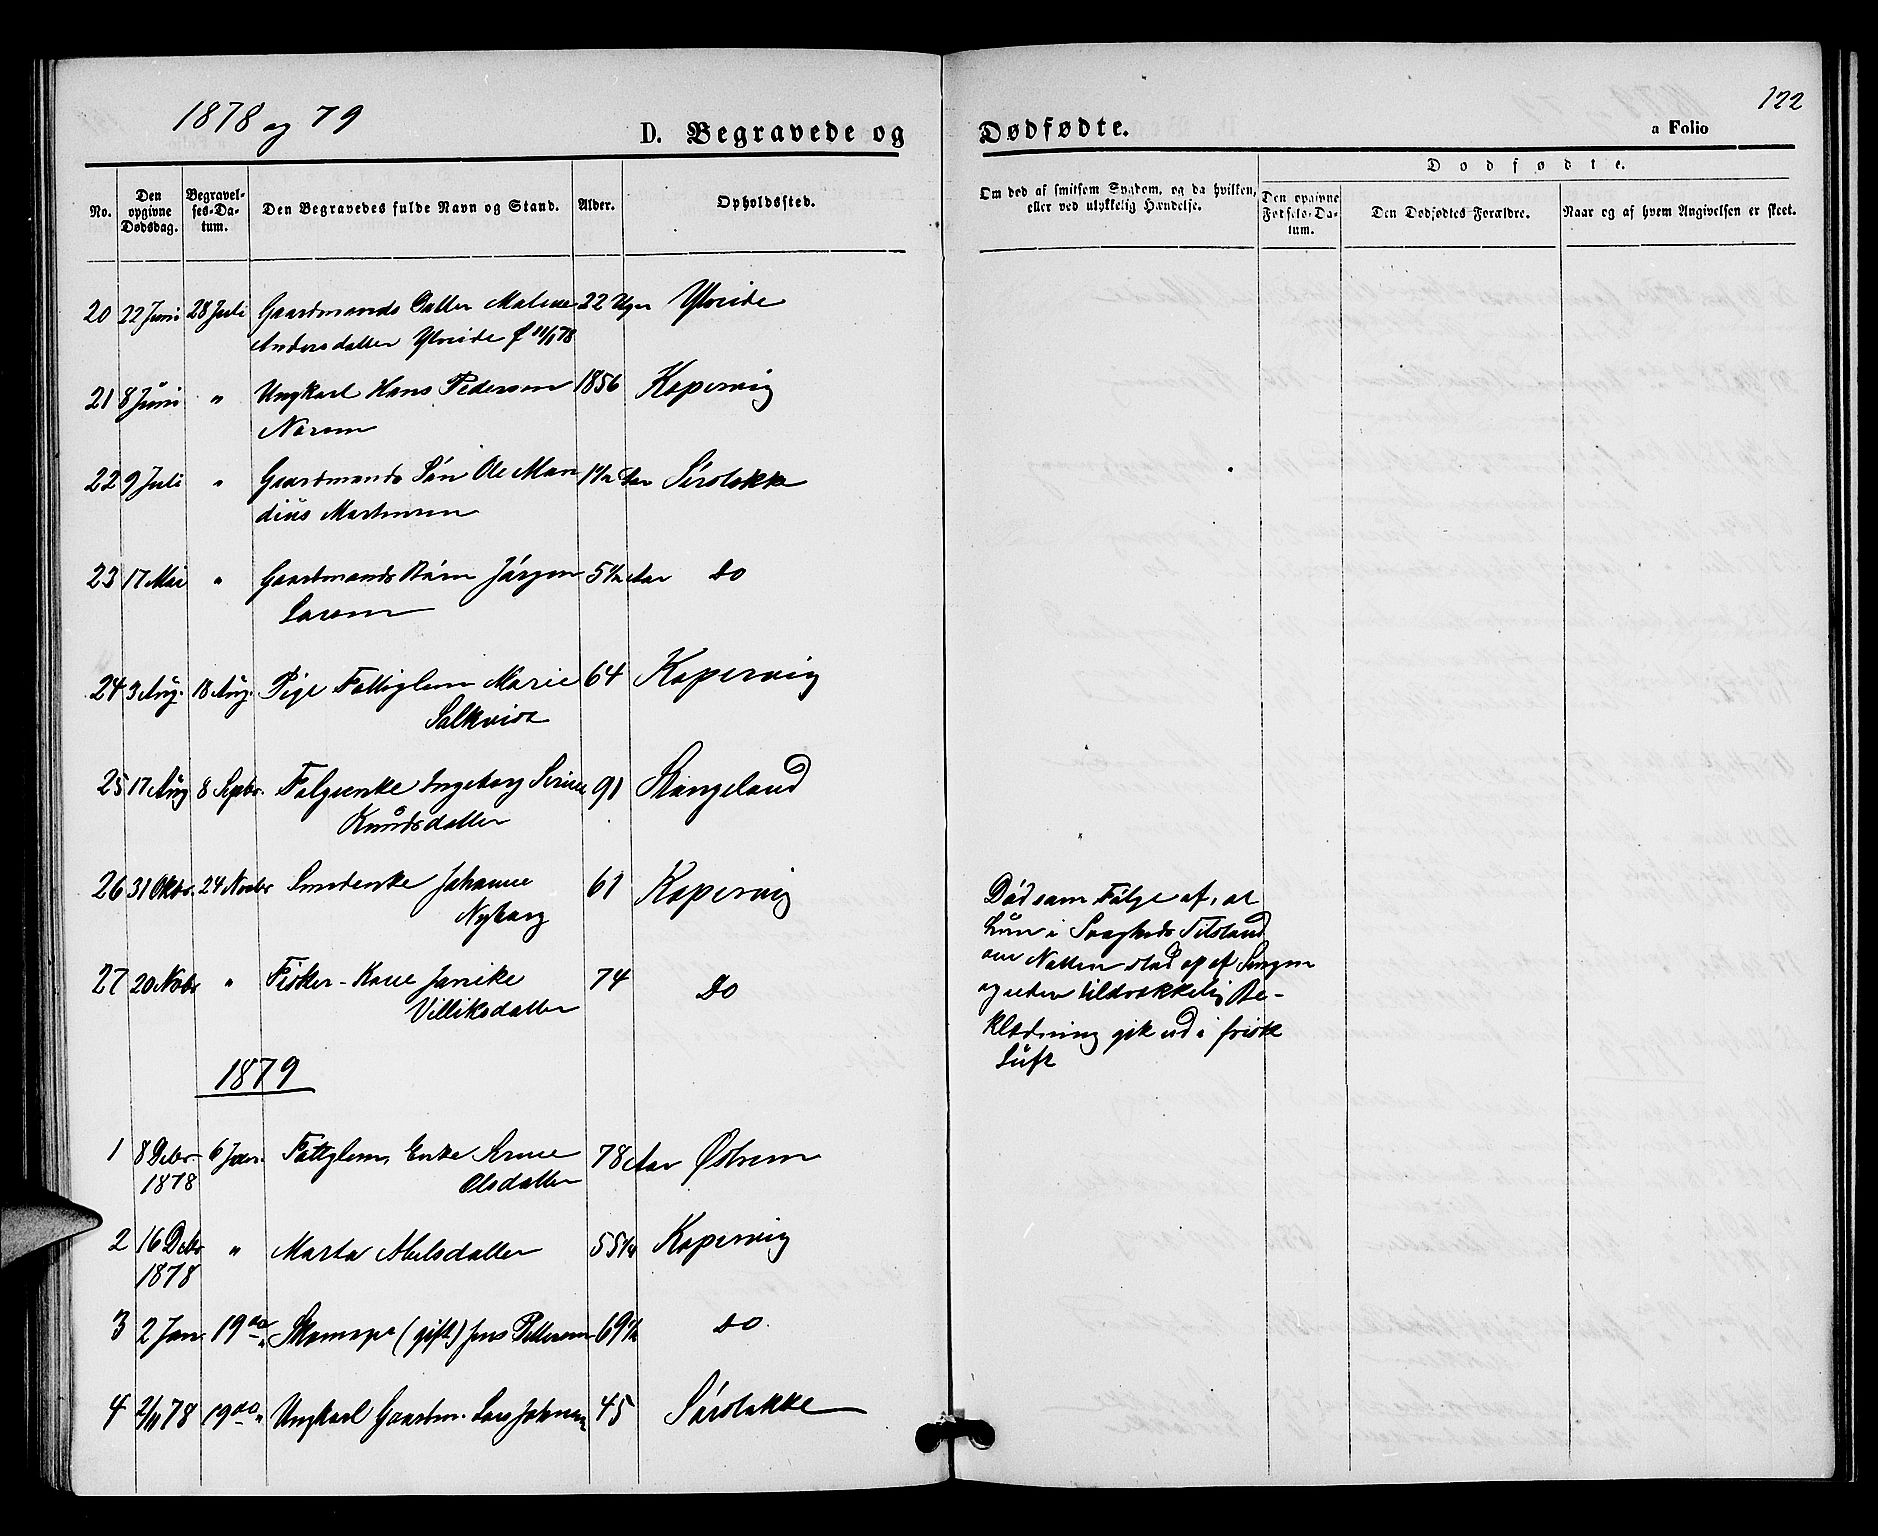 1878 og 79
122
D. Begravede og Dødfødte.
a Folio
No.
Den opgivne Dødsdag.
Begravelses-Datum.
Den Begravedes fulde Navn og Stand.
Alder.
Opholdssted.
Om død af smitsom Sygdom, og da hvilken,
eller ved ulykkelig Hændelse.
Dødfødte.
Den opgivne Fødsels-Datum.
Den Dødfødtes Forældre.
Naar og af hvem Angivelsen er skeet.
20 22 Juni 28 Juli Gaardmands Datter Malene 22 Uger
Andersdatter
21 8 Juni " Ungkarl Hans Pedersen 1856 Kopervig
22 9 Juli " Gaardmands Søn Ole Man 1½ Aar
dius Martinsen
23 17 Mai " Gaardmands Barn Jørgen 5½ Aar do
Larsen
24 3 Aug. 18 Aug. Pige Fattiglem Marie 64 Kopervig
Salkvist
25 17 Aug 8 Sepbr. Følgeenke Ingeborg Serine 91 Stangeland
Knudsdatter
26 31 Oktbr. 24 Novbr Smedenke Johanne 61 Kopervig
Nyborg
Død som Følge af, at
hun i Svagheds Tilstand
om Natten stod op af Sengen
og uden tilstrækkelig Be-
klædning gik ud i friske
Luft
27 20 Novbr " Fisker-Kone Janike 74 do
Villiksdatter
1879
1 8 Debr. 6 Jan. Fattiglem, Enke Serine 78 Aar Østrem
1878 Olsdatter
2 16 Debr " Marta Abelsdatter 55½ Kopervig
1878
3 2 Jan. 19 do " (gift) Jens Pettersen 69½ do
4 2/11 78 19 do " Ungkarl Gaardm. Lars 45